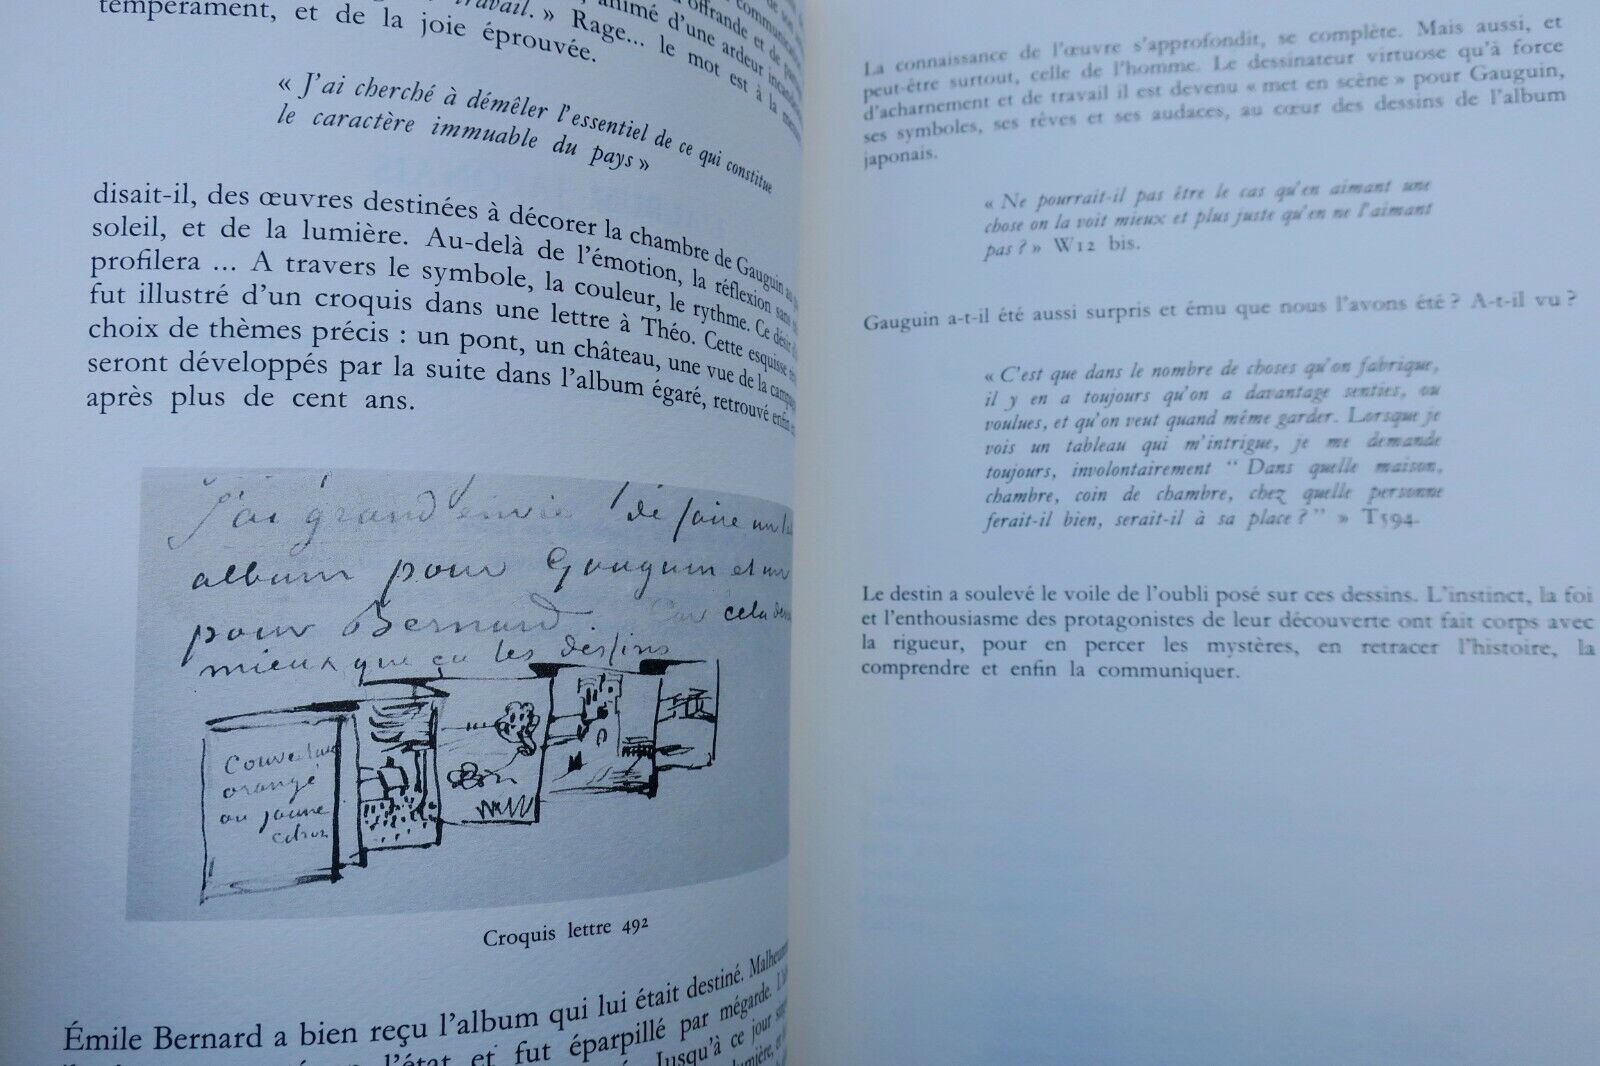 travail. » Rage... le mot est à la
animé d'une ardeur
offrande et de
tempérament, et de la joie éprouvée.
« J'ai cherché à démêler l'essentiel de ce qui constitue
le caractère immuable du pays »
disait-il, des œuvres destinées à décorer la chambre de Gauguin au
soleil, et de la lumière. Au-delà de l'émotion, la réflexion sans
profilera ... A travers le symbole, la couleur, le rythme. Ce désir
fut illustré d'un croquis dans une lettre à Théo. Cette esquisse
choix de thèmes précis : un pont, un château, une vue de la campagne
seront développés par la suite dans l'album égaré, retrouvé enfin
après plus de cent ans.
J'ai grand envie de faire un
album pour Gauguin et un
pour Bernard. Car cela
mieux que ça les dessins
Couverture
orangé
ou jaune
citron
Croquis lettre 492
Émile Bernard a bien reçu l'album qui lui était destiné.
l'état et fut éparpillé par mégarde.
Jusqu'à ce jour
La connaissance de l'œuvre s'approfondit, se complète. Mais aussi, et
peut-être surtout, celle de l'homme. Le dessinateur virtuose qu'à force
d'acharnement et de travail il est devenu « met en scène » pour Gauguin,
ses symboles, ses rêves et ses audaces, au cœur des dessins de l'album
japonais.
« Ne pourrait-il pas être le cas qu'en aimant une
chose on la voit mieux et plus juste qu'en ne l'aimant
pas ? » W12 bis.
Gauguin a-t-il été aussi surpris et ému que nous l'avons été ? A-t-il vu ?
« C'est que dans le nombre de choses qu'on fabrique,
il y en a toujours qu'on a davantage senties, ou
voulues, et qu'on veut quand même garder. Lorsque je
vois un tableau qui m'intrigue, je me demande
toujours, involontairement “ Dans quelle maison,
chambre, coin de chambre, chez quelle personne
ferait-il bien, serait-il à sa place ? ” » T594.
Le destin a soulevé le voile de l'oubli posé sur ces dessins. L'instinct, la foi
et l'enthousiasme des protagonistes de leur découverte ont fait corps avec
la rigueur, pour en percer les mystères, en retracer l'histoire, la
comprendre et enfin la communiquer.